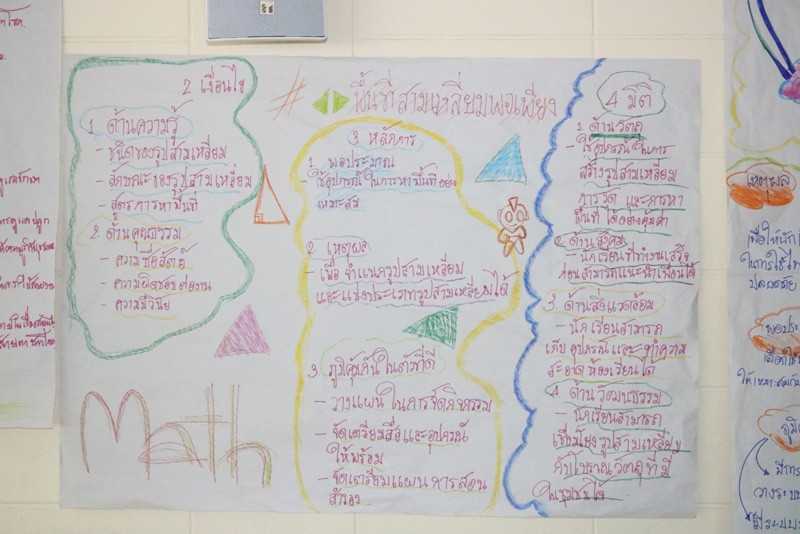 # พื้นที่สามเหลี่ยมพอเพียง
2 เงื่อนไข
1. ด้านความรู้
- ชนิดของรูปสามเหลี่ยม
- ลักษณะของรูปสามเหลี่ยม
- สูตรการหาพื้นที่
2. ด้านคุณธรรม
- ความซื่อสัตย์
- ความรับผิดชอบต่องาน
- ความมีวินัย
Math
3 หลักการ
1. พอประมาณ
- ใช้อุปกรณ์ในการหาพื้นที่อย่าง
เหมาะสม
2. เหตุผล
- เพื่อจำแนกรูปสามเหลี่ยม
และแบ่งประเภทรูปสามเหลี่ยมได้
3. ภูมิคุ้มกันในตัวที่ดี
- วางแผนในการจัดกิจกรรม
- จัดเตรียมสื่อและอุปกรณ์
ให้พร้อม
- จัดเตรียมแผนการสอน
สำรอง
4 มิติ
1. ด้านวัตถุ
- ใช้อุปกรณ์ในการ
สร้างรูปสามเหลี่ยม
การวัด และการหา
พื้นที่ได้อย่างคุ้มค่า
2. ด้านสังคม
- นักเรียนที่ทำงานเสร็จ
ก่อนสามารถแนะนำเพื่อนได้
3. ด้านสิ่งแวดล้อม
- นักเรียนสามารถ
เก็บอุปกรณ์และทำความ
สะอาดห้องเรียนได้
4. ด้านวัฒนธรรม
- นักเรียนสามารถ
เชื่อมโยงรูปสามเหลี่ยม
กับโบราณวัตถุที่มี
ในชุมชนได้
เหตุผล